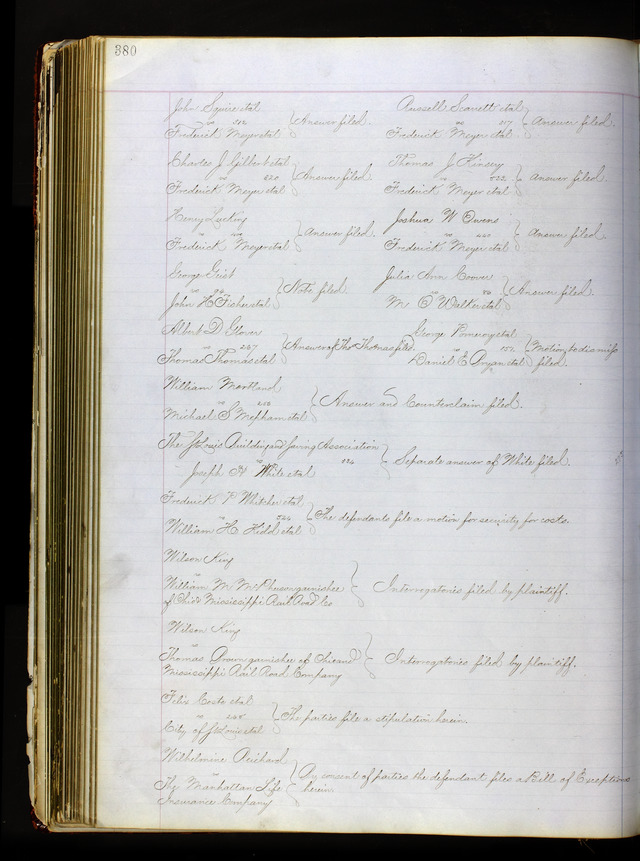 380
John Squire et al
vs 312
Frederick Meyer et al
Answer filed.
Russell Scarett et al
vs 317
Frederick Meyer et al
Answer filed.
Charles J Gilbert et al
vs 320
Frederick Meyer et al
Answer filed.
Thomas J Kinsey
vs 322
Frederick Meyer et al
Answer filed.
Henry
vs
Frederick Meyer et al
Answer filed.
Joshua W Owens
vs
Frederick Meyer et al
Answer filed.
George
vs
John H et al
Note filed.
Julia Ann Coover
vs
M O Walker et al
Answer filed.
Albert D Glover
vs
Thomas Thomas et al
Answer of Thos Thomas filed
George Pomeroy et al
vs 152
Daniel E et al
Motion to dismiss
filed.
William Mortland
vs
Michael S Mepham et al
Answer and Counterclaim filed.
The St Louis Building and Saving Association
vs 324
Joseph H White et al
Separate answer of White filed.
Frederick P et al
vs
William H Kidd et al
The defendants file a motion for security for costs.
Wilson King
vs
William M McPherson garnishee
of Chi & Mississippi Rail Road Co
Interrogatories filed by plaintiff.
Wilson King
vs
Thomas garnishee of Chicago &
Mississippi Rail Road Company
Interrogatories filed by plaintiff.
Felix Coste et al
vs
City of St Louis et al
The parties file a stipulation herein.
Wilhelmine
vs
The Manhattan Life
Insurance Company
By consent of parties the defendant files a Bill of Exceptions
herein